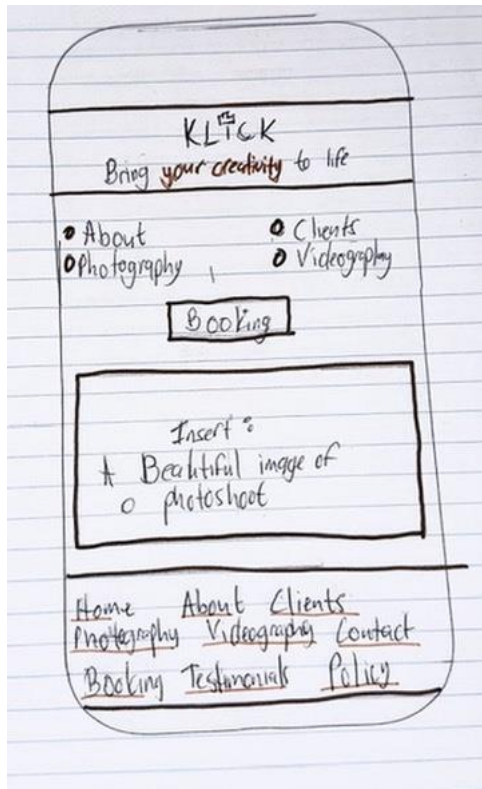 KLICK
Bring your creativity to life
About Clients
Photography Videography
Booking
Insert :
A Beautiful image of
photoshoot
Home About Clients
Photography Videography Contact
Booking Testimonials Policy